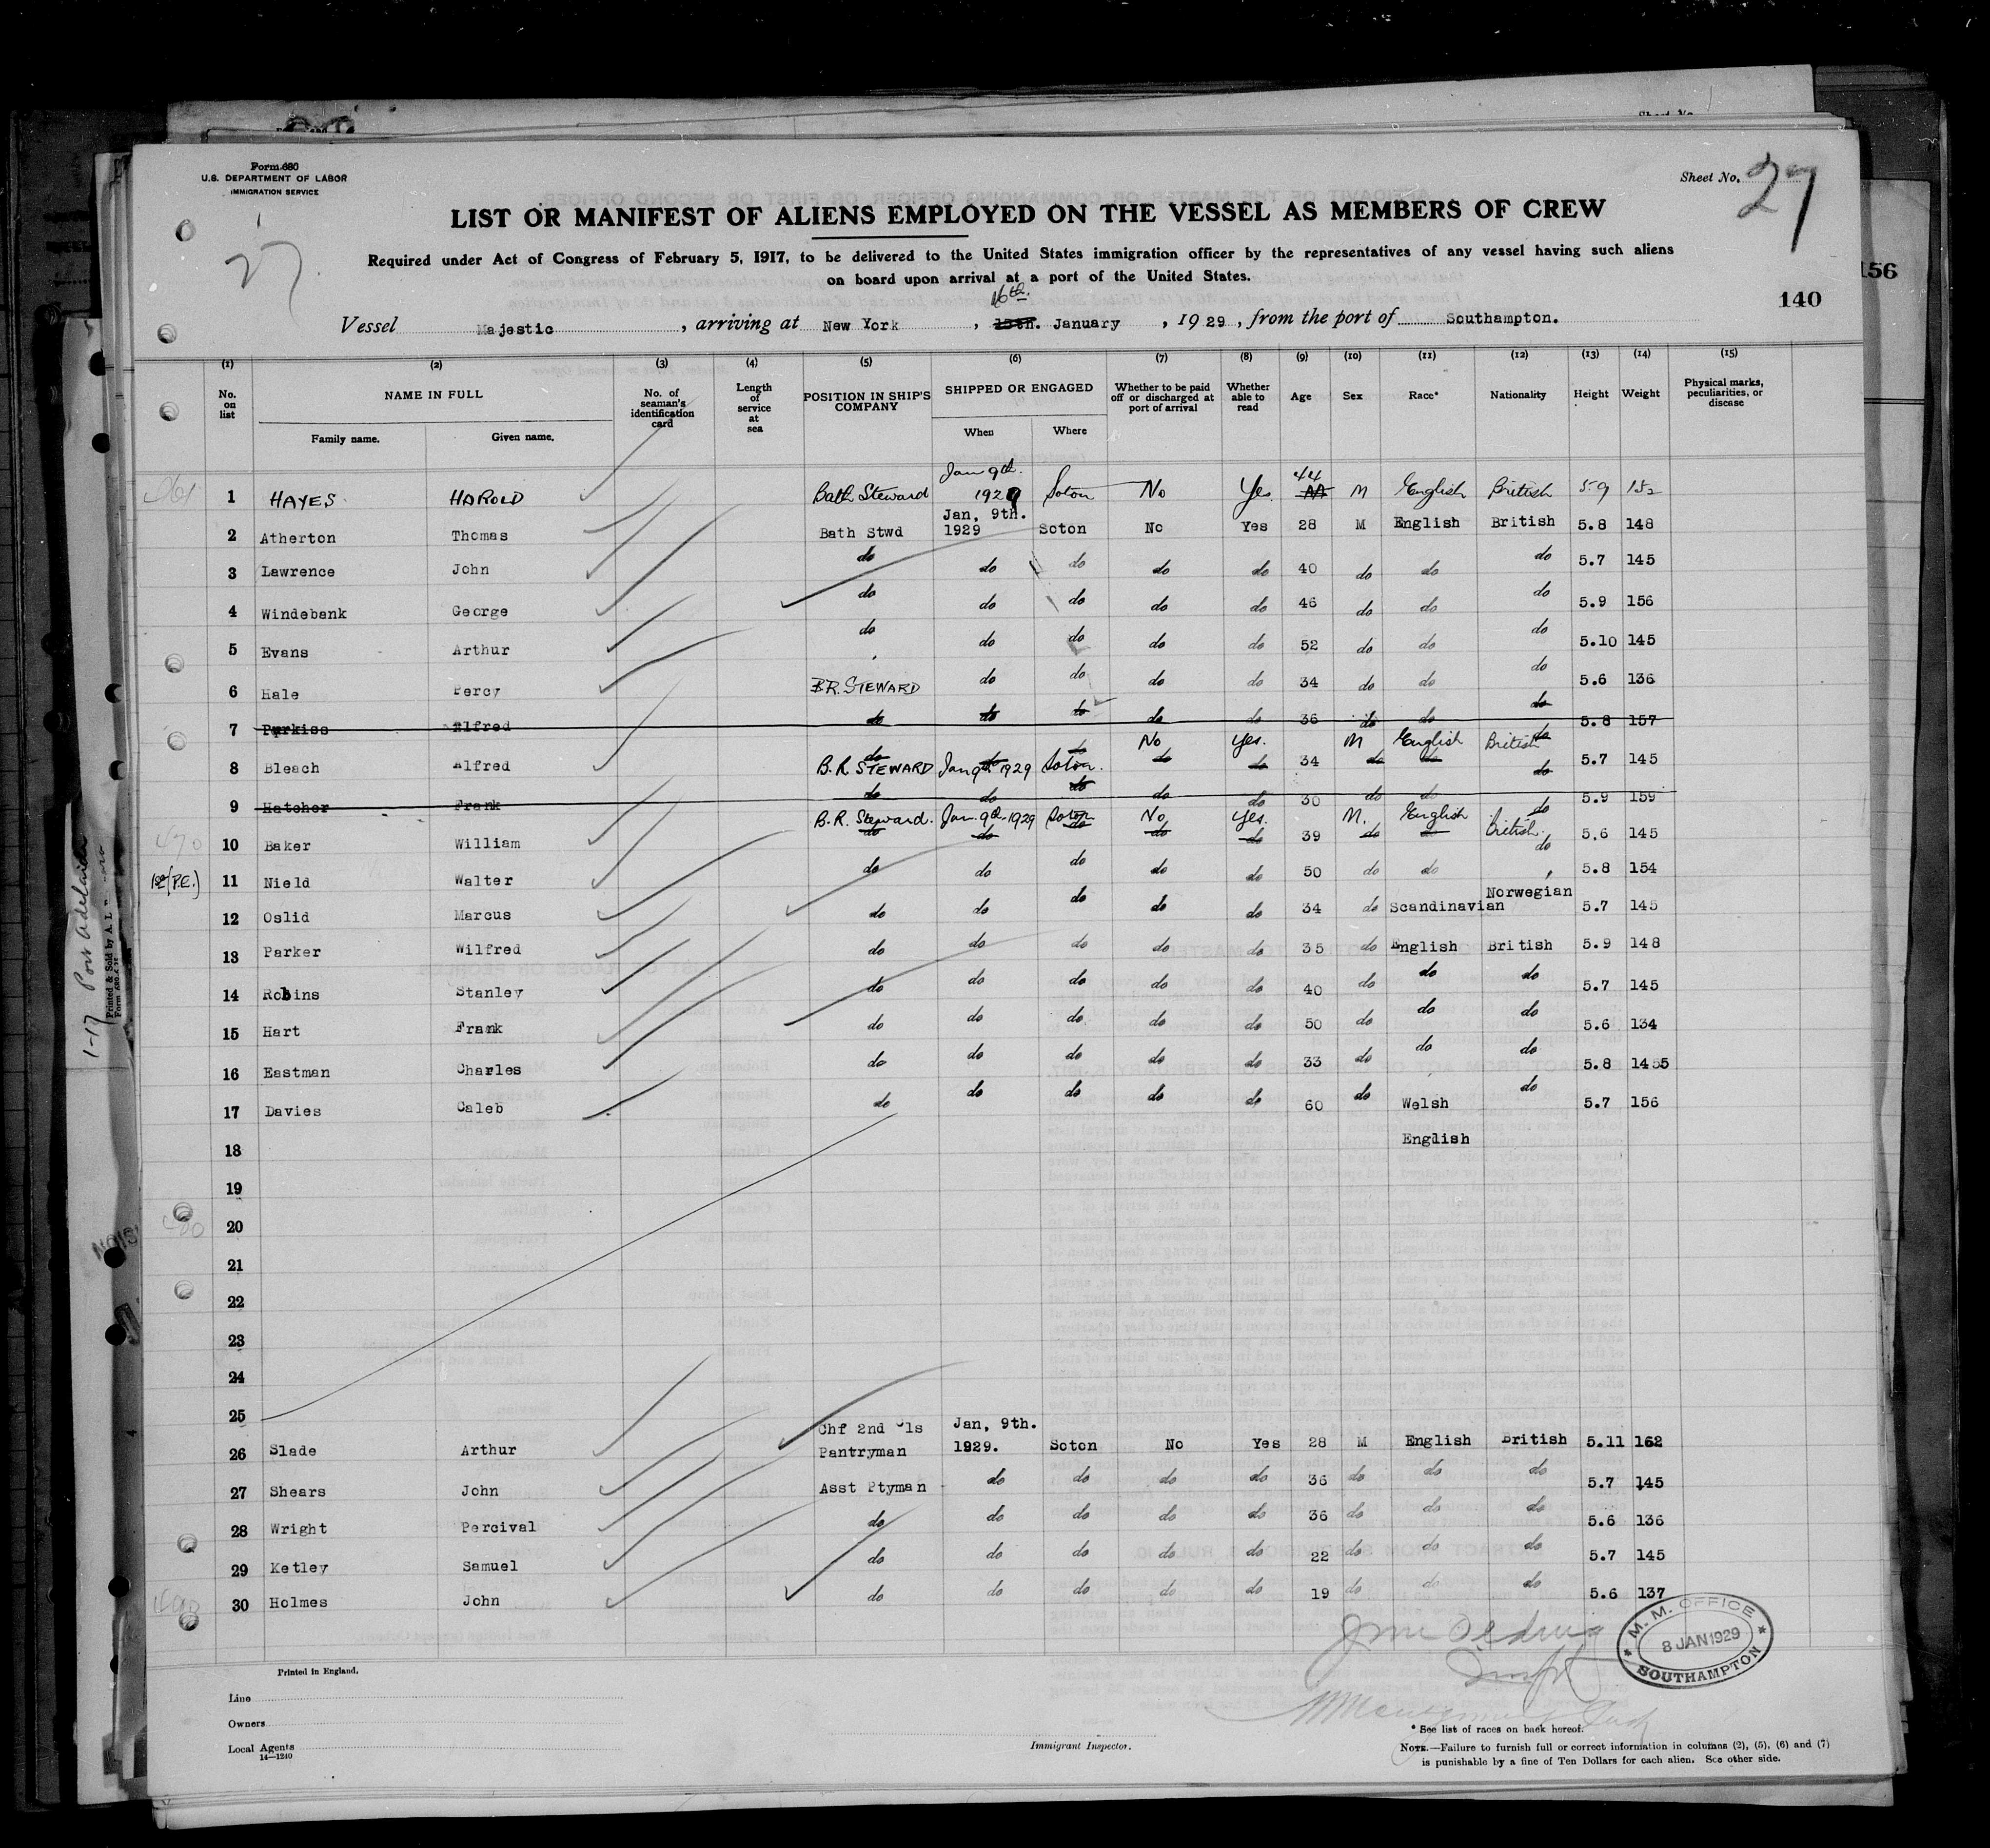 Form 680
U.S. DEPARTMENT OF LABOR
IMMIGRATION SERVICE
Sheet No. 27
27
LIST OR MANIFEST OF ALIENS EMPLOYED ON THE VESSEL AS MEMBERS OF CREW
Required under Act of Congress of February 5, 1917, to be delivered to the United States immigration officer by the representatives of any vessel having such aliens
on board upon arrival at a port of the United States.
156
140
16th.
Vessel Majestic, arriving at New York, 15th. January, 1929, from the port of Southampton.
(1) (2) (3) (4) (5) (6) (7) (8) (9) (10) (11) (12) (13) (14) (15)
No. on list NAME IN FULL No. of seaman's identification card Length of service at sea POSITION IN SHIP'S COMPANY SHIPPED OR ENGAGED Whether to be paid off or discharged at port of arrival Whether able to read Age Sex Race* Nationality Height Weight Physical marks, peculiarities, or disease
Family name. Given name. When Where
1 HAYES HAROLD Bath Steward Jan 9th. 1929 Soton No Yes 44 M English British 5.9 152
2 Atherton Thomas Bath Stwd Jan, 9th. 1929 Soton No Yes 28 M English British 5.8 148
3 Lawrence John do do do do do 40 do do do 5.7 145
4 Windebank George do do do do do 46 do do do 5.9 156
5 Evans Arthur do do do do do 52 do do do 5.10 145
6 Hale Percy B.R. STEWARD do do do do 34 do do do 5.6 136
7 Purkiss Alfred do do do do do 36 do do do 5.8 157
8 Bleach Alfred B.R. STEWARD Jan 9th 1929 Soton. No Yes. 34 M English British 5.7 145
9 Hatcher Frank do do do do do 30 do do do 5.9 159
10 Baker William B.R. Steward. Jan. 9th 1929 Soton No Yes. 39 M. English British. 5.6 145
1st (P.E.) 11 Nield Walter do do do do do 50 do do do 5.8 154
12 Oslid Marcus do do do do do 34 do Scandinavian Norwegian 5.7 145
13 Parker Wilfred do do do do do 35 do English British 5.9 148
14 Robins Stanley do do do do do 40 do do do 5.7 145
15 Hart Frank do do do do do 50 do do do 5.6 134
16 Eastman Charles do do do do do 33 do do do 5.8 1455
17 Davies Caleb do do do do do 60 do Welsh do 5.7 156
18 English
19
20
21
22
23
24
25
26 Slade Arthur Chf 2nd Cls Pantryman Jan, 9th. 1929. Soton No Yes 28 M English British 5.11 162
27 Shears John Asst Ptyman do do do do 36 do do do 5.7 145
28 Wright Percival do do do do do 36 do do do 5.6 136
29 Ketley Samuel do do do do do 22 do do do 5.7 145
30 Holmes John do do do do do 19 do do do 5.6 137
M. M. OFFICE
8 JAN 1929
SOUTHAMPTON
Printed in England.
Line
Owners
Local Agents
14—1240
Immigrant Inspector.
* See list of races on back hereof.
NOTE.—Failure to furnish full or correct information in columns (2), (5), (6) and (7)
is punishable by a fine of Ten Dollars for each alien. See other side.
1-17 Port Adelaide
Printed & Sold by A. L.